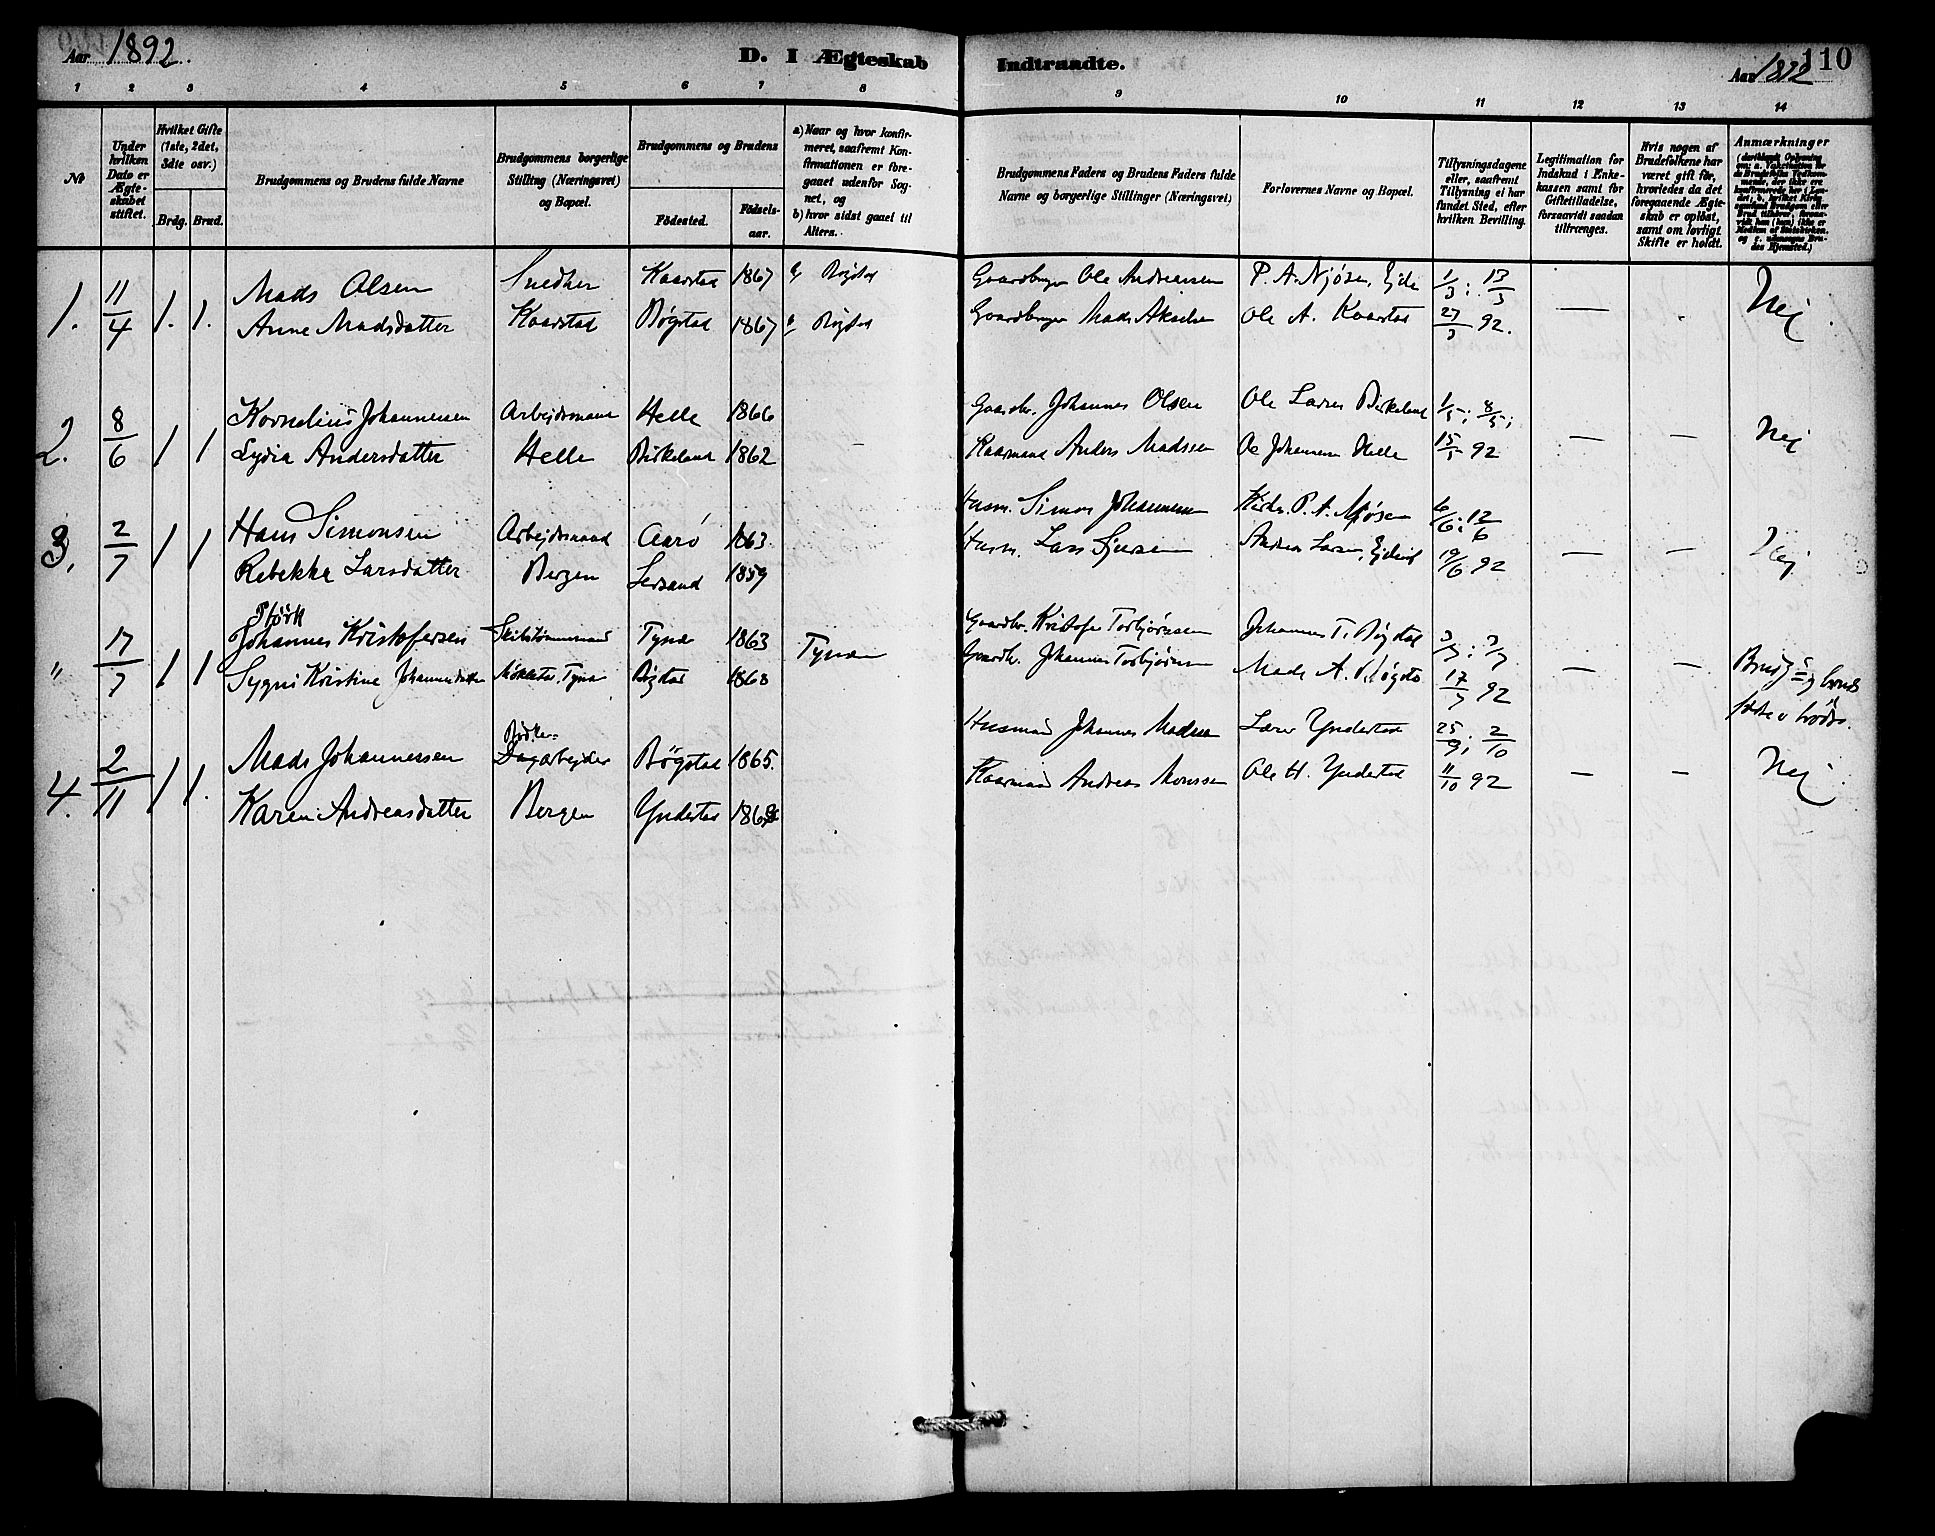 Aar 1892.
D. I Ægteskab Indtraadte.
Aar 1892
110
1 2 3 4 5 6 7 8 9 10 11 12 13 14
No
Under hvilken Dato er Ægteskabet stiftet.
Hvilket Gifte (1ste, 2det, 3die osv.)
Brdg. Brud.
Brudgommens og Brudens fulde Navne
Brudgommens borgerlige Stilling (Næringsvei) og Bopæl.
Brudgommens og Brudens
Födested.
Födsels-aar.
a) Naar og hvor konfirmeret, saafremt Konfirmationen er foregaaet udenfor Sognet, og
b) hvor sidst gaaet til Alters.
Brudgommens Faders og Brudens Faders fulde Navne og borgerlige Stillinger (Næringsvei)
Forlovernes Navne og Bopæl.
Tillysningsdagene eller, saafremt Tillysning ei har fundet Sted, efter hvilken Bevilling.
Legitimation for Indskud i Enkekassen samt for Giftetilladelse, forsaavidt saadan tiltrænges.
Hvis nogen af Brudefolkene har været gift før, hvorledes da det foregaaende Ægteskab er opløst, samt om lovligt Skifte er holdt.
Anmærkninger
1. 11/4 1. 1. Mads Olsen Snedker Kaarstad 1867 Gaardbruger Ole Andreassen P. A. Njøsen, Ejde 1/3; 13/3 — Nej
Anne Madsdatter Kaarstad Bögstad 1867 Gaardbruger Mads Akselsen Ole A. Kaarstad 27/3 92.
2. 8/6 1 1 Kornelius Johannessen Arbejdsmand Helle 1866 Gaardbr. Johannes Olsen Ole Larsen Birkeland 1/5; 8/5;
Lydia Andersdatter Helle Birkeland 1862 — Kaarmand Anders Madssen Ole Johannessen Helle 15/5 92 — — Nej
3. 2/7 1 1 Hans Simonsen Arbejdsmand Aarö 1863 Husm. Simon Johannessen P. A. Njøsen 6/6; 12/6
Rebekka Larsdatter Bergen 1859 Husm. Lars 19/6 92 — — Nej
Störk
" 17/7 1 1 Johannes Kristofersen Skibstømmermand Tynæs 1863 Tynæs Gaardbr. Kristofer Torbjörnsen Johannes T. Bögstad 3/7;
Sygni Kristine Johannesdatter Tynæs Bögstad 1868 Gaardbr. Johannes Torbjörnsen Mads A. Bögstad 17/7 92 — —
Bödker-
4. 2/11 1 1. Mads Johannessen Dagarbejder Bögstad 1865. Husmand Johannes Madssen Lars Yndestad 25/9; 2/10
Karen Andreasdatter Bergen Yndestad 1868 Kaarmand Andreas Monssen Ole H. Yndestad 11/10 92 — — Nej